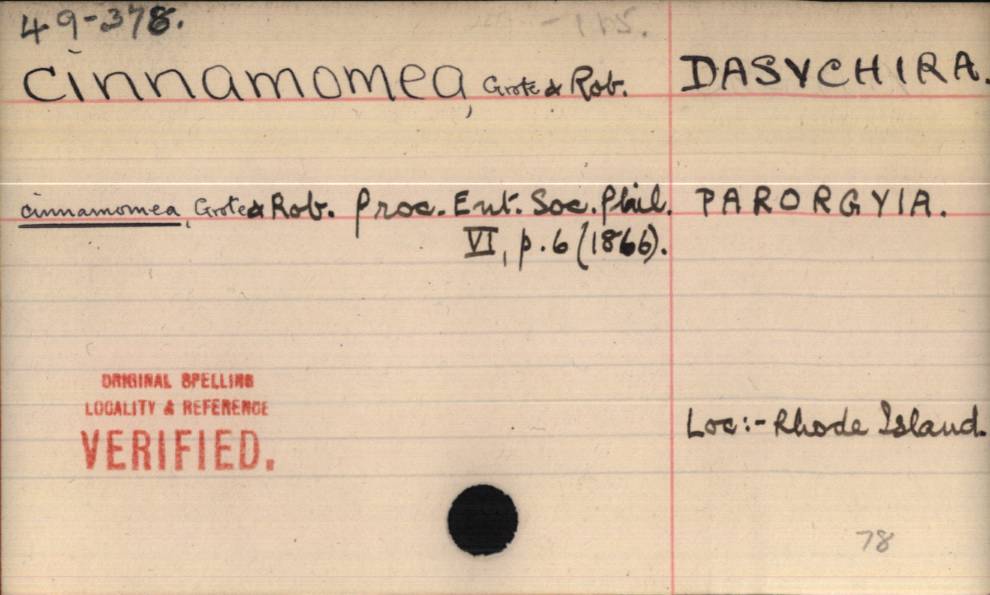 49-378.
cinnamomea, Grote & Rob. DASYCHIRA.
cinnamomea, Grote & Rob. Proc. Ent. Soc. Phil. PARORGYIA.
VI, p. 6 (1866).
ORIGINAL SPELLING
LOCALITY & REFERENCE
VERIFIED.
Loc:- Rhode Island.
78